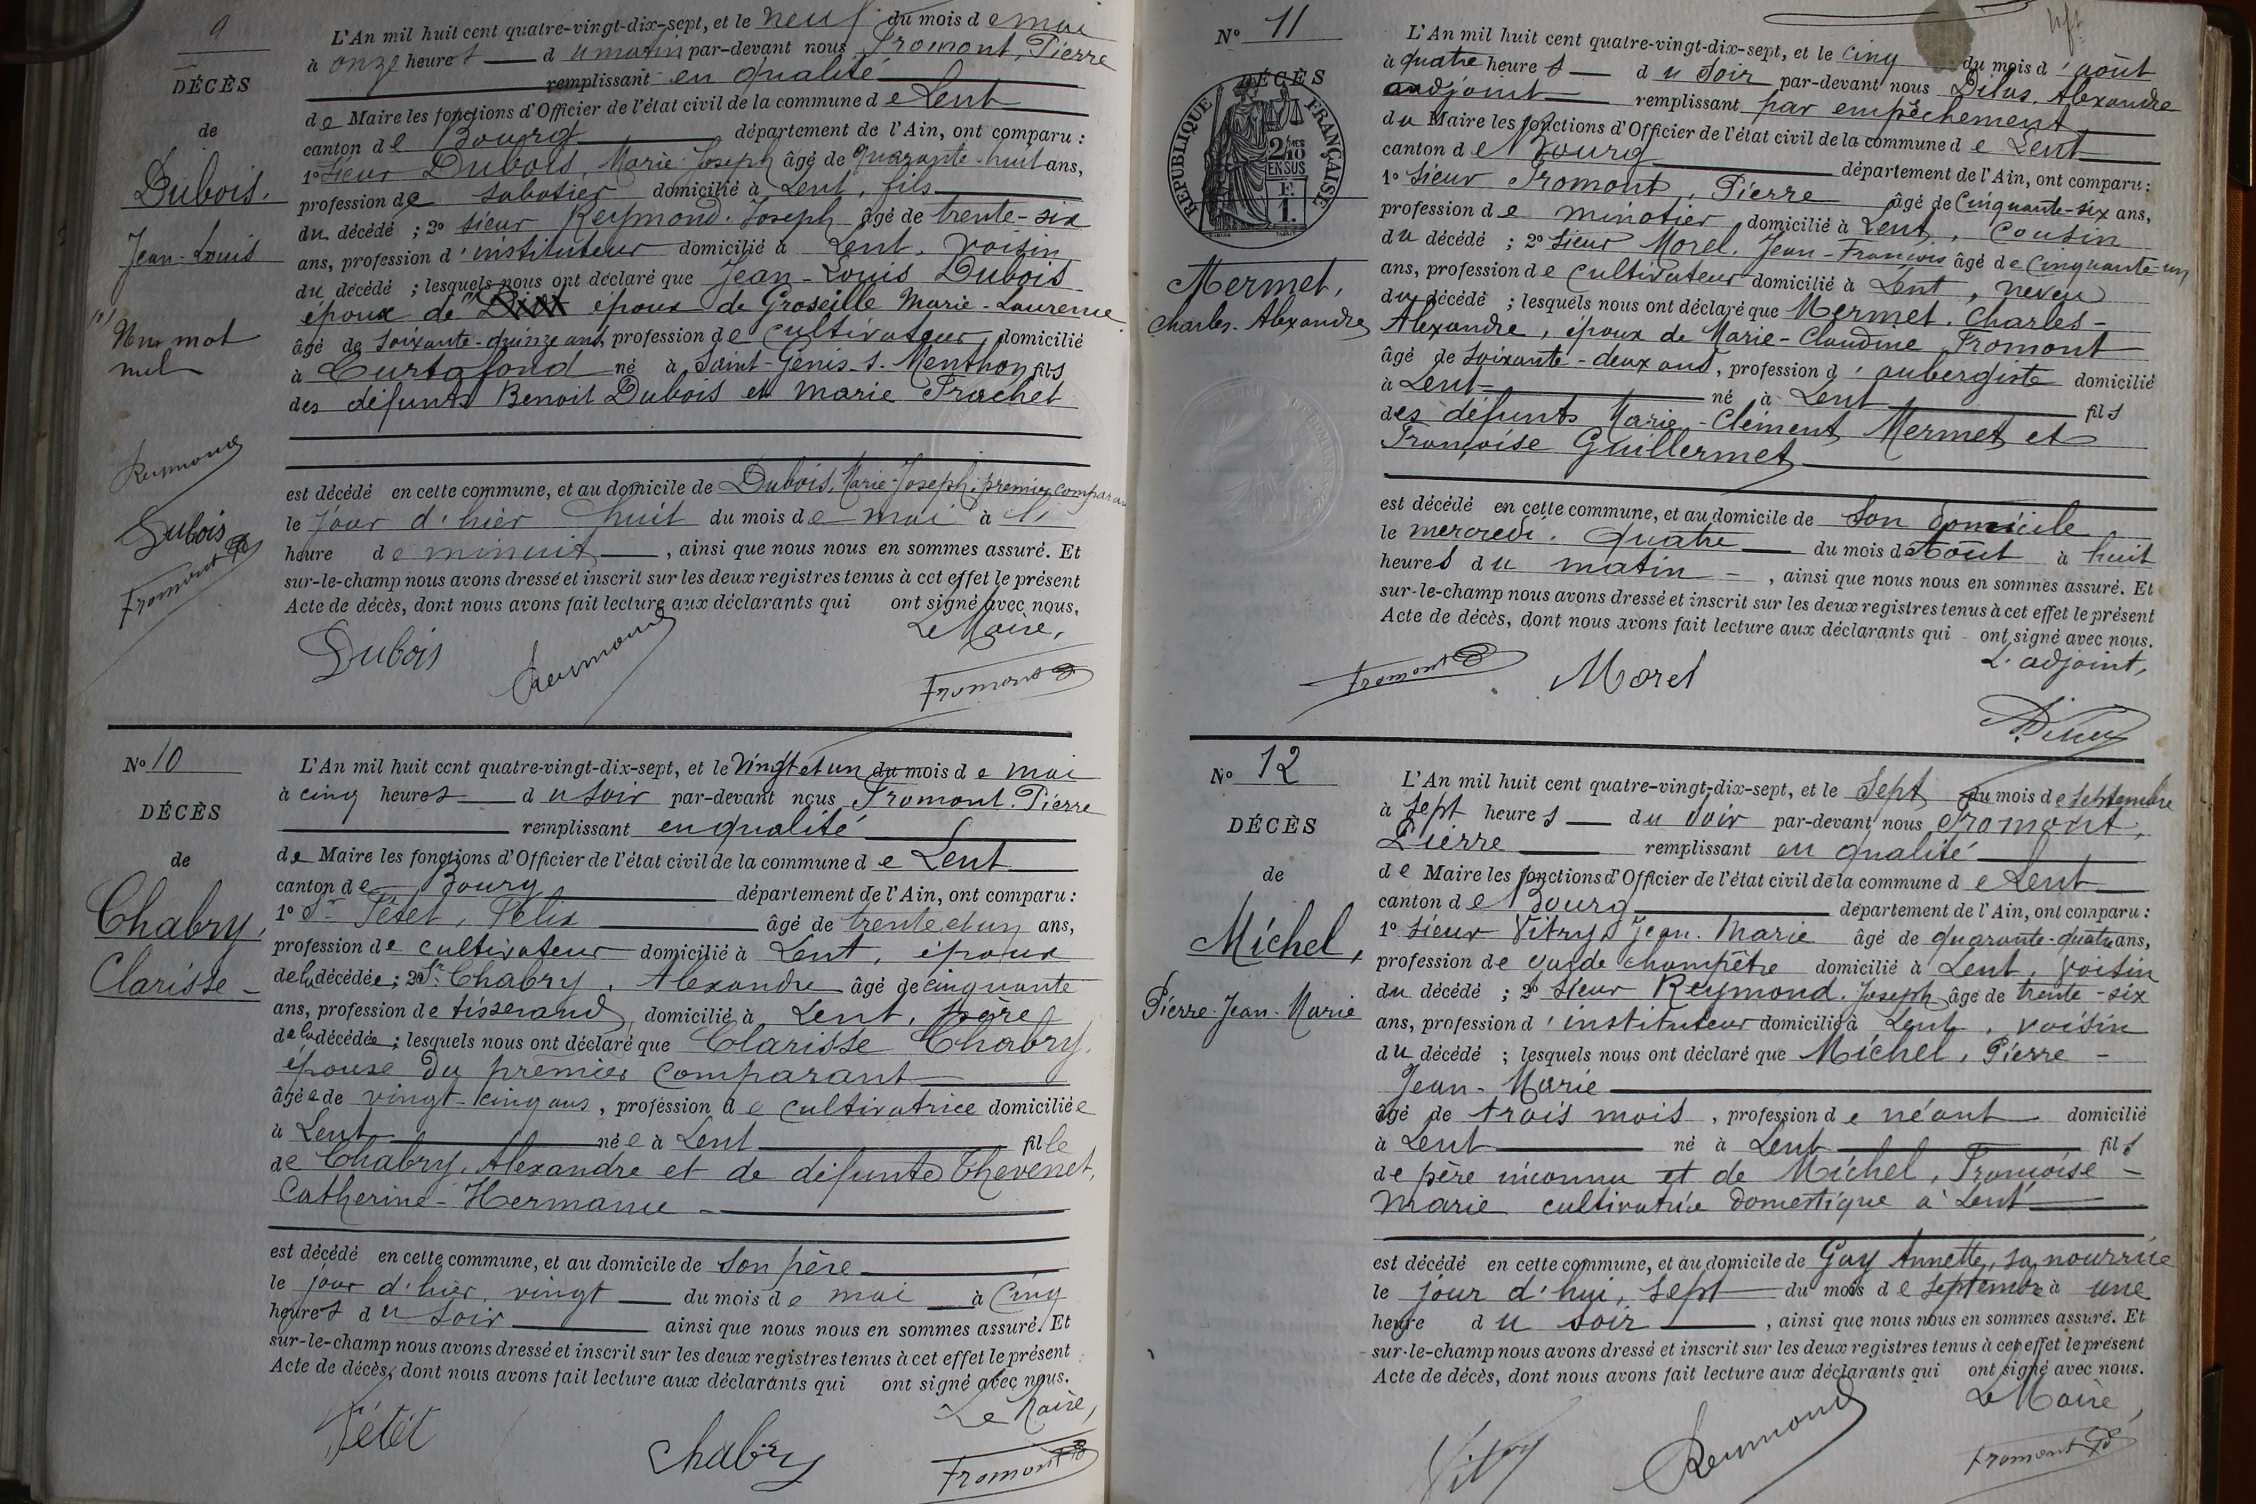 9
DÉCÈS
de
Dubois,
Jean-Louis
Un mot
nul
Reymond
Dubois
Fromont
L'An mil huit cent quatre-vingt-dix-sept, et le neuf du mois de mai
à onze heures du matin par-devant nous Fromont, Pierre
remplissant en qualité
de Maire les fonctions d'Officier de l'état civil de la commune de Lent
canton de Bourg département de l'Ain, ont comparu :
1° Sieur Dubois, Marie-Joseph âgé de quarante-huit ans,
profession de sabotier domicilié à Lent, fils
du décédé ; 2° sieur Reymond, Joseph âgé de trente-six
ans, profession d'instituteur domicilié à Lent, voisin
du décédé ; lesquels nous ont déclaré que Jean-Louis Dubois
époux de époux de Groseille Marie-Laurence
âgé de soixante-quinze ans, profession de cultivateur domicilié
à Curtafond né à Saint-Génis-s-Menthon fils
des défunts Benoit Dubois et Marie Prachet
est décédé en cette commune, et au domicile de Dubois, Marie-Joseph, premier comparant
le jour d'hier huit du mois de mai à
heure de minuit, ainsi que nous nous en sommes assuré. Et
sur-le-champ nous avons dressé et inscrit sur les deux registres tenus à cet effet le présent
Acte de décès, dont nous avons fait lecture aux déclarants qui ont signé avec nous.
Le Maire,
Dubois Reymond Fromont
N° 10
DÉCÈS
de
Chabry,
Clarisse
L'An mil huit cent quatre-vingt-dix-sept, et le vingt et un du mois de mai
à cinq heures du soir par-devant nous Fromont, Pierre
remplissant en qualité
de Maire les fonctions d'Officier de l'état civil de la commune de Lent
canton de Bourg département de l'Ain, ont comparu :
1° Sr Tétet, Félix âgé de trente et un ans,
profession de cultivateur domicilié à Lent, époux
de la décédée ; 2° Sr Chabry, Alexandre âgé de cinquante
ans, profession de tisserand, domicilié à Lent, père
de la décédée ; lesquels nous ont déclaré que Clarisse Chabry,
épouse du premier comparant
âgée de vingt-cinq ans, profession de cultivatrice domiciliée
à Lent née à Lent fille
de Chabry, Alexandre et de défunte Thevenet,
Catherine-Hermanie
est décédé en cette commune, et au domicile de son père
le jour d'hier, vingt du mois de mai à cinq
heures du soir ainsi que nous nous en sommes assuré. Et
sur-le-champ nous avons dressé et inscrit sur les deux registres tenus à cet effet le présent
Acte de décès, dont nous avons fait lecture aux déclarants qui ont signé avec nous.
Le Maire,
Tétet Chabry Fromont
N° 11
DÉCÈS
RÉPUBLIQUE FRANÇAISE
2/10 EN SUS
F. 1.
Mermet,
Charles-Alexandre
L'An mil huit cent quatre-vingt-dix-sept, et le cinq du mois d'août
à quatre heures du soir par-devant nous Dilas, Alexandre
adjoint remplissant par empêchement
du Maire les fonctions d'Officier de l'état civil de la commune de Lent
canton de Bourg département de l'Ain, ont comparu :
1° Sieur Fromont, Pierre âgé de cinquante-six ans,
profession de minotier domicilié à Lent, cousin
du décédé ; 2° sieur Morel, Jean-François âgé de cinquante-un
ans, profession de cultivateur domicilié à Lent, neveu
du décédé ; lesquels nous ont déclaré que Mermet, Charles-
Alexandre, époux de Marie-Claudine Fromont
âgé de soixante-deux ans, profession d'aubergiste domicilié
à Lent né à Lent fils
des défunts Marie-Clément Mermet et
Françoise Guillermet
est décédé en cette commune, et au domicile de son domicile
le mercredi, quatre du mois d'Août à huit
heures du matin, ainsi que nous nous en sommes assuré. Et
sur-le-champ nous avons dressé et inscrit sur les deux registres tenus à cet effet le présent
Acte de décès, dont nous avons fait lecture aux déclarants qui ont signé avec nous.
L'adjoint,
Fromont Morel
N° 12
DÉCÈS
de
Michel,
Pierre-Jean-Marie
L'An mil huit cent quatre-vingt-dix-sept, et le sept du mois de septembre
à sept heures du soir par-devant nous Fromont,
Pierre remplissant en qualité
de Maire les fonctions d'Officier de l'état civil de la commune de Lent
canton de Bourg département de l'Ain, ont comparu :
1° Sieur Vitry, Jean-Marie âgé de quarante-quatre ans,
profession de garde champêtre domicilié à Lent, voisin
du décédé ; 2° Sieur Reymond, Joseph âgé de trente-six
ans, profession d'instituteur domicilié à Lent, voisin
du décédé ; lesquels nous ont déclaré que Michel, Pierre-
Jean-Marie
âgé de trois mois, profession de néant domicilié
à Lent né à Lent fils
de père inconnu et de Michel, Françoise-
Marie cultivatrice domestique à Lent
est décédé en cette commune, et au domicile de Gay Annette, sa nourrice
le jour d'hui, sept du mois de septembre à une
heure du soir, ainsi que nous nous en sommes assuré. Et
sur-le-champ nous avons dressé et inscrit sur les deux registres tenus à cet effet le présent
Acte de décès, dont nous avons fait lecture aux déclarants qui ont signé avec nous.
Le Maire,
Vitry Reymond Fromont